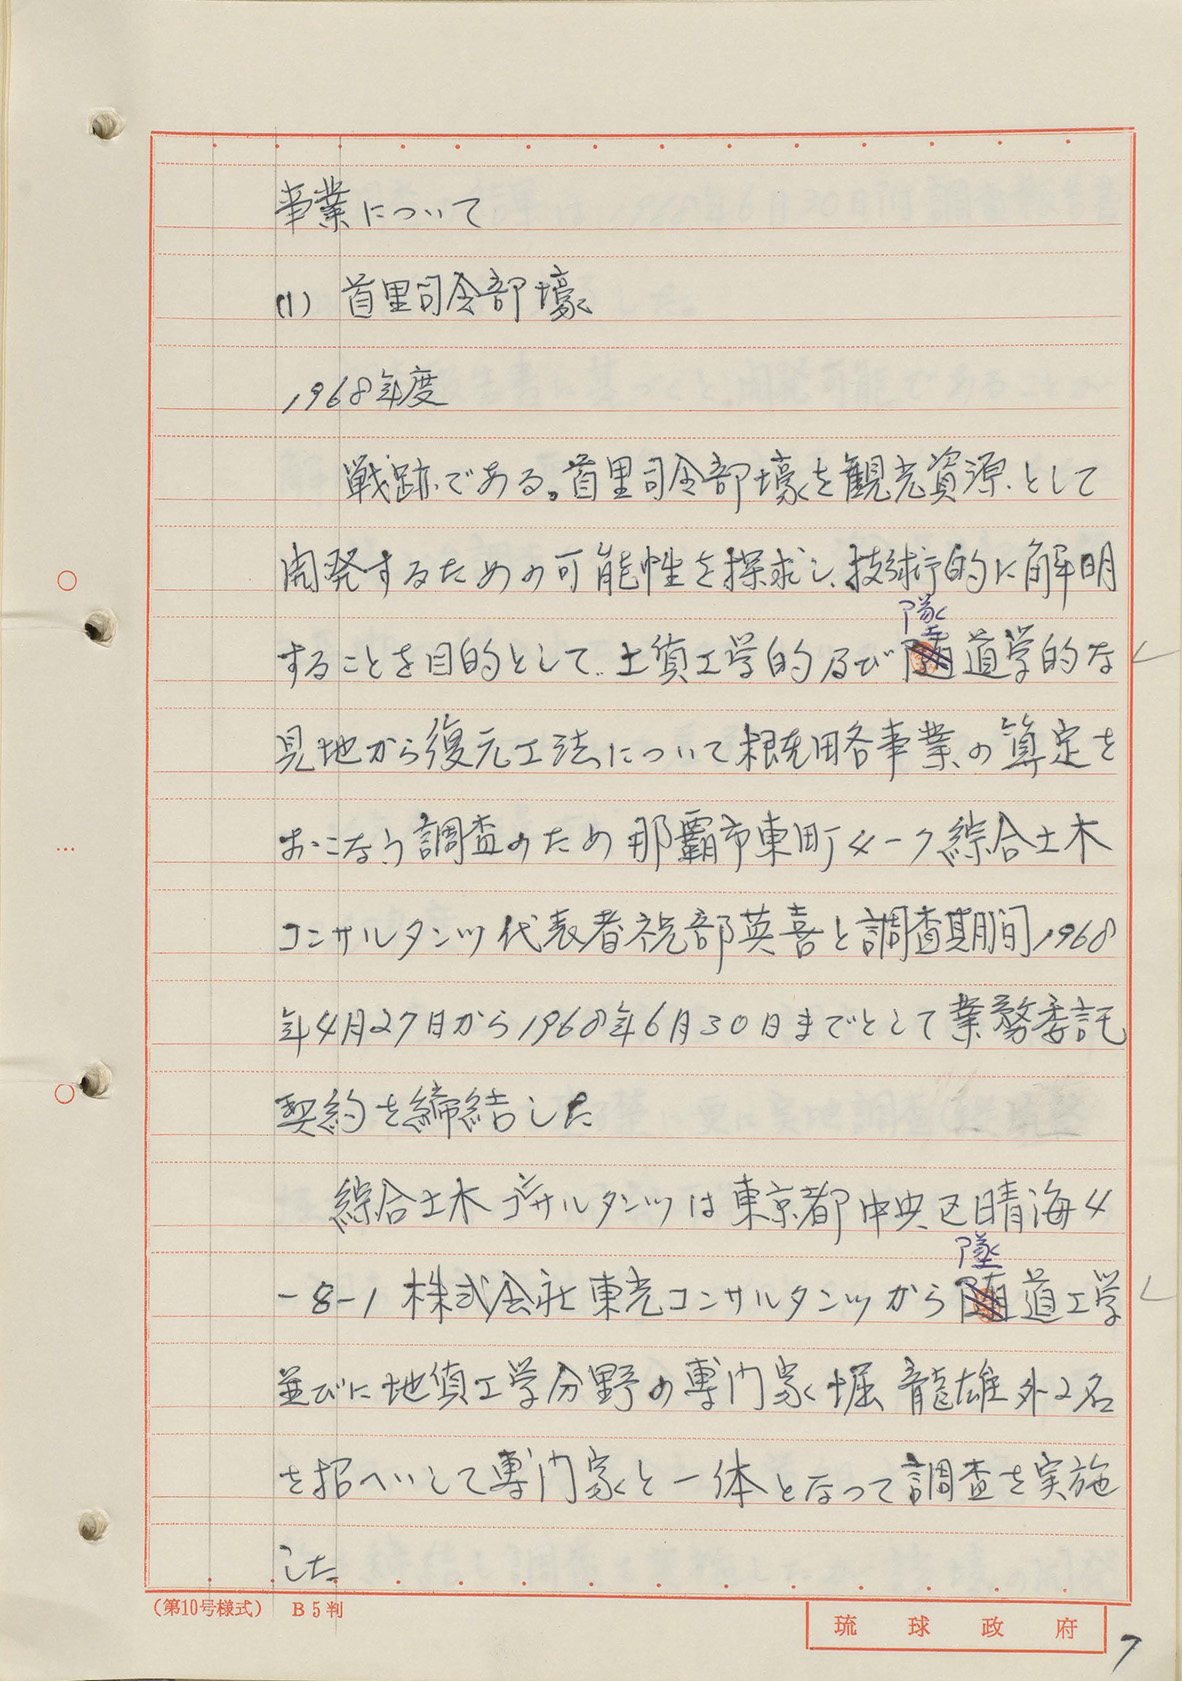 事業について
(1) 首里司令部壕
1968年度
戦跡である。首里司令部壕を観光資源として
開発するための可能性を探求し、技術的に解明
隧
することを目的として、土質工学的及び道学的な
見地から復元工法について根概略各事業の算定を
おこなう調査のため那覇市東町4-7綜合土木
コンサルタンツ代表者祝部英喜と調査期間1968
年4月27日から1968年6月30日までとして業務委託
契約を締結した
綜合土木コンサルタンツは東京都中央区晴海4
隧
-8-1株式会社東光コンサルタンツから道工学
並びに地質工学分野の専門家堀 龍雄外2名
を招へいして専門家と一体となって調査を実施
した。
(第10号様式) B5判
琉球政府
7